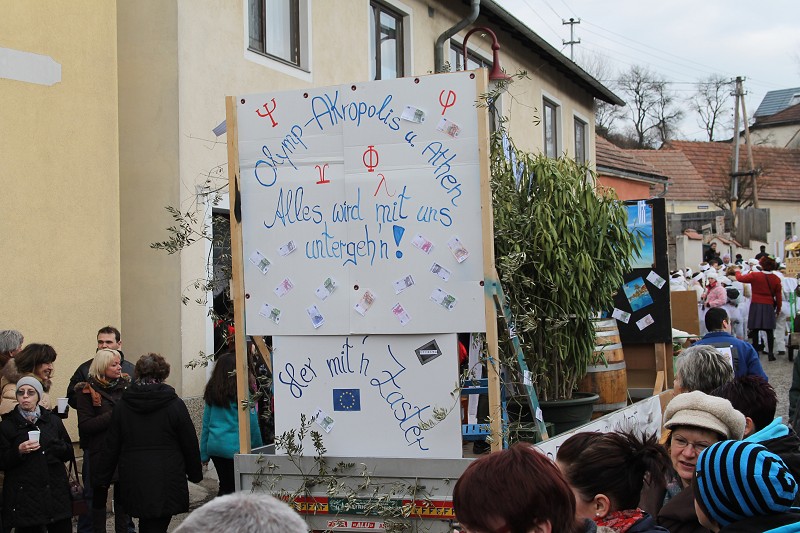 Ψ φ
Olymp-Akropolis u. Athen
Υ Φ λ
Alles wird mit uns
untergeh'n!
8er mit'n Zaster